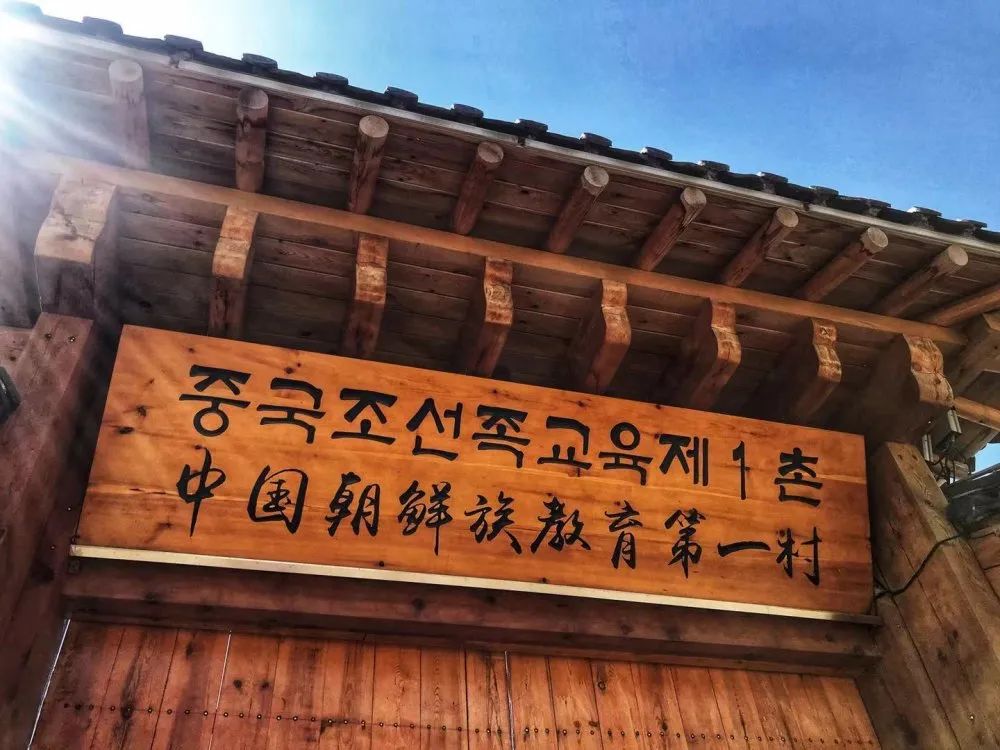 중국조선족교육제1촌
中国朝鲜族教育第一村